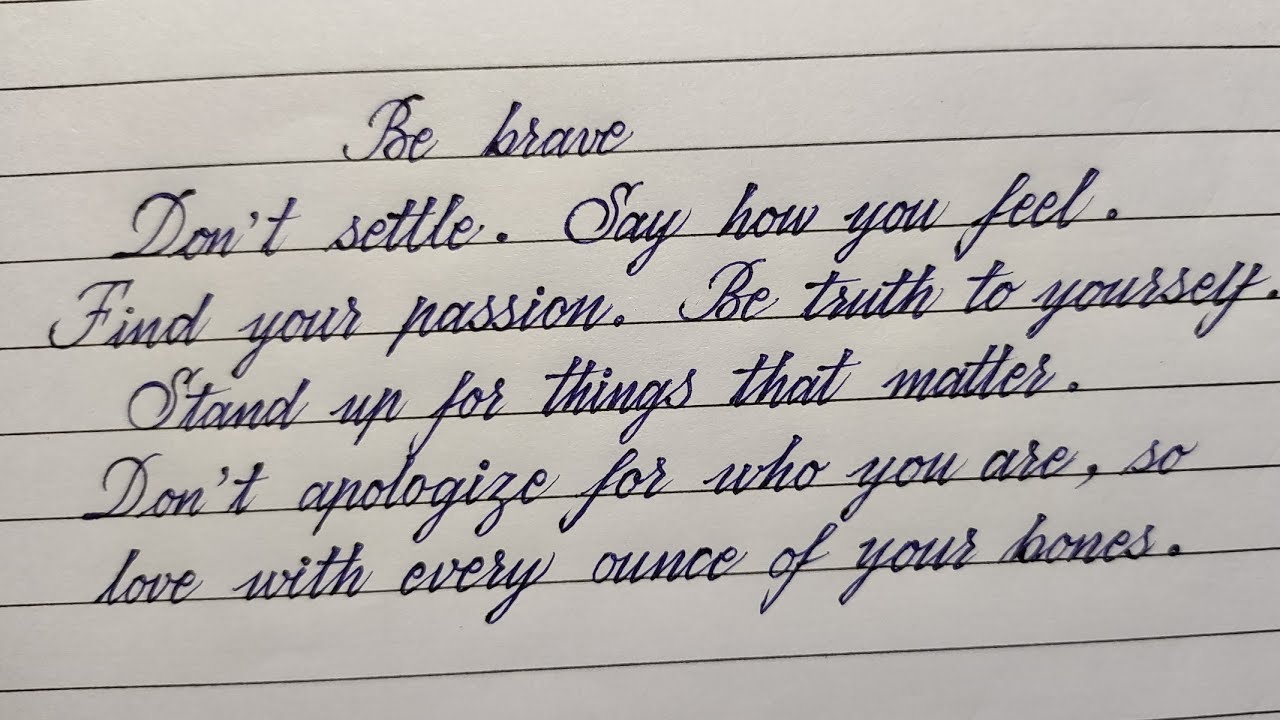 Be brave
Don't settle. Say how you feel.
Find your passion. Be truth to yourself.
Stand up for things that matter.
Don't apologize for who you are, so
love with every ounce of your bones.